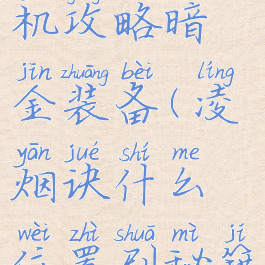 机攻略暗
jīn zhuāng bèi líng
金装备(凌
yān jué shí me
烟诀什么
wèi zhì shuā mì jí
位置刷秘籍